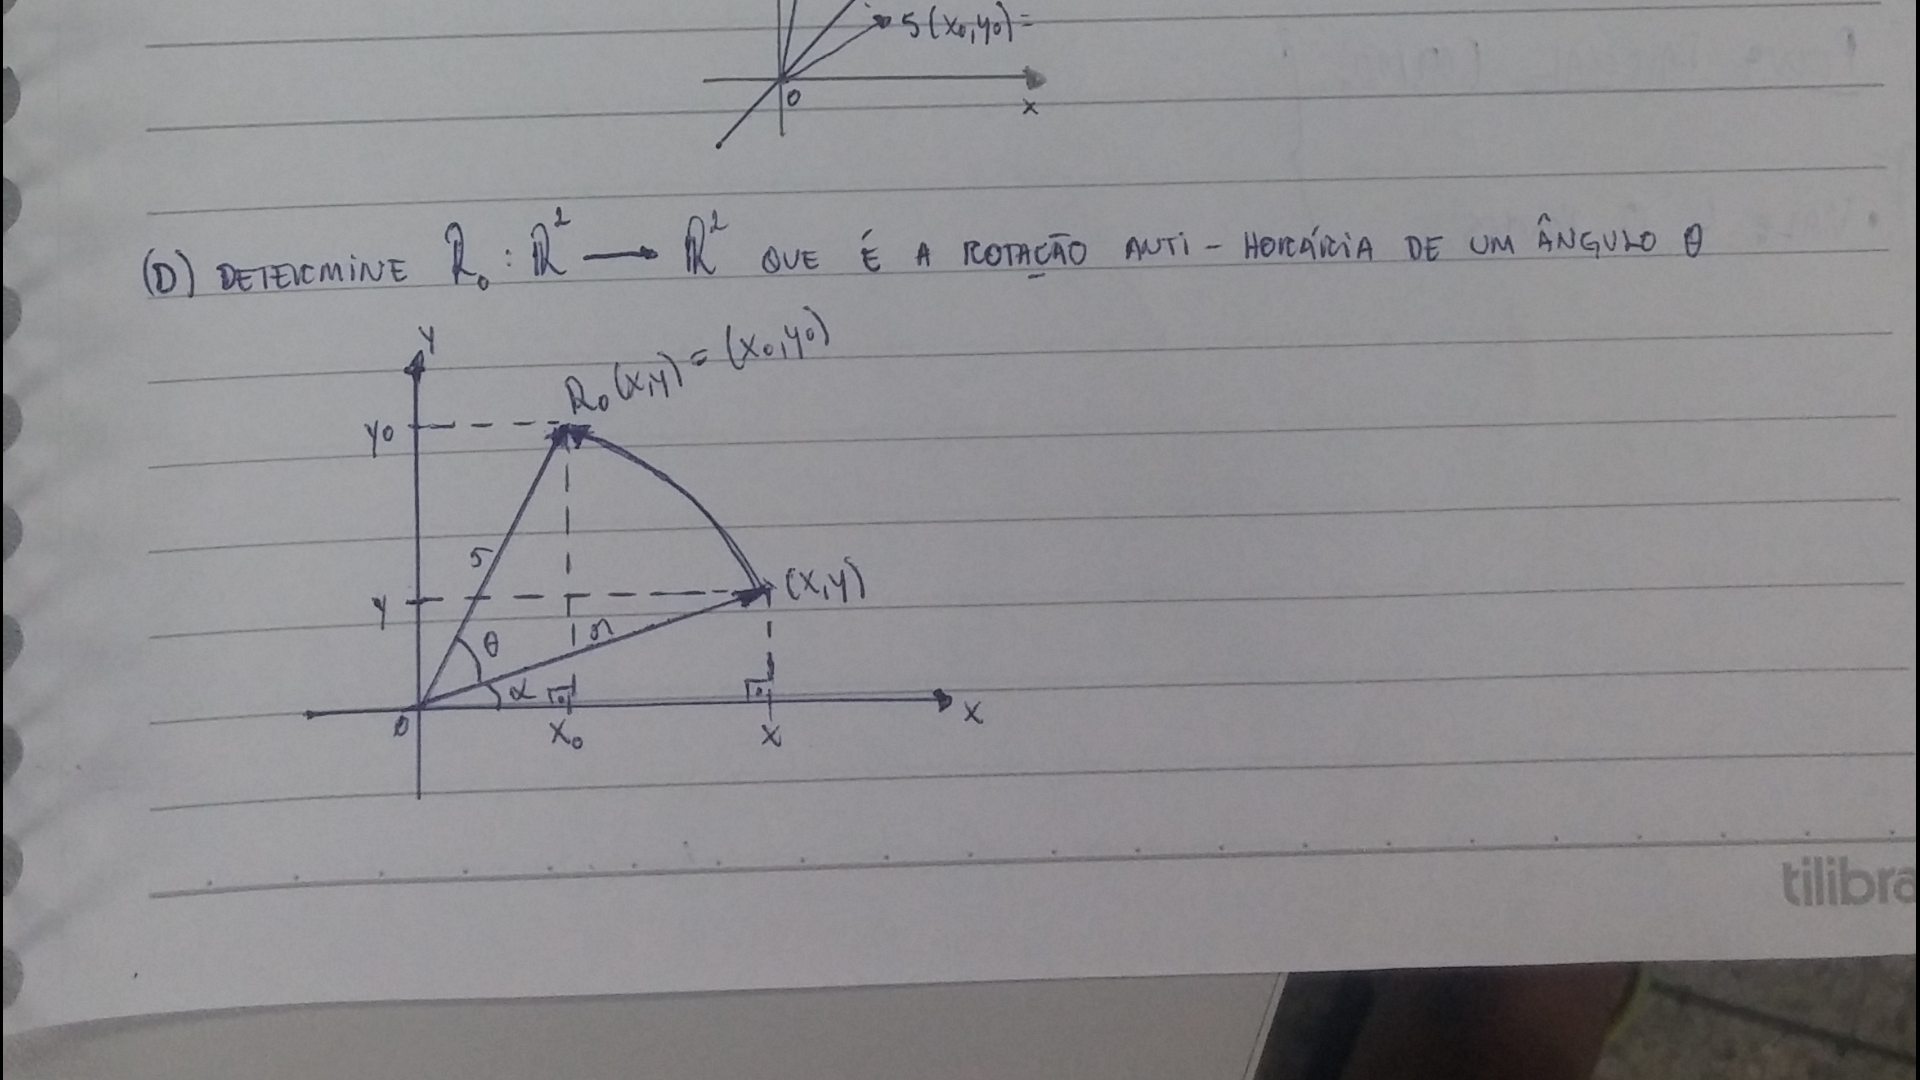 5(x₀,y₀)=
0
x
(D) DETERMINE R₀ : R² → R² QUE É A ROTAÇÃO ANTI-HORÁRIA DE UM ÂNGULO θ
Y
R₀(x,y) = (x₀,y₀)
y₀
5
(x,y)
y
θ
α
0
x₀
x
x
tilibra